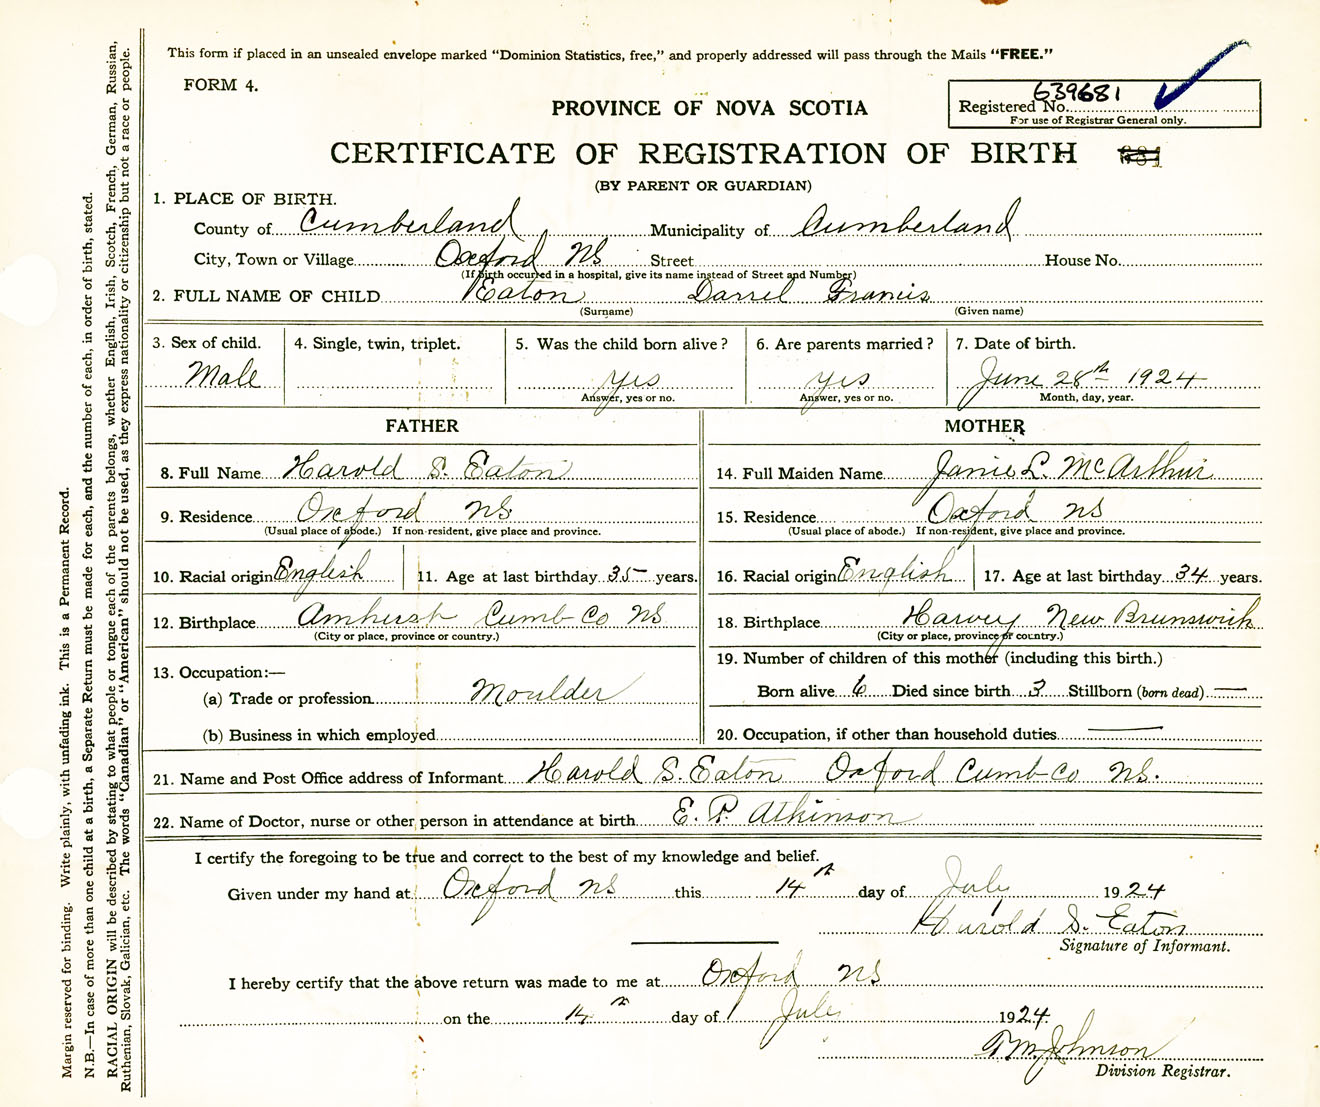 This form if placed in an unsealed envelope marked "Dominion Statistics, free," and properly addressed will pass through the Mails "FREE."
FORM 4.
639681
Registered No.
For use of Registrar General only.
PROVINCE OF NOVA SCOTIA
CERTIFICATE OF REGISTRATION OF BIRTH
(BY PARENT OR GUARDIAN)
1. PLACE OF BIRTH.
County of Cumberland Municipality of Cumberland
City, Town or Village Oxford NS Street House No.
(If birth occurred in a hospital, give its name instead of Street and Number)
2. FULL NAME OF CHILD Eaton Darrel Francis
(Surname) (Given name)
3. Sex of child. 4. Single, twin, triplet. 5. Was the child born alive? 6. Are parents married? 7. Date of birth.
Male yes yes June 28th 1924
Answer, yes or no. Answer, yes or no. Month, day, year.
FATHER
8. Full Name Harold S. Eaton
9. Residence Oxford NS
(Usual place of abode.) If non-resident, give place and province.
10. Racial origin English 11. Age at last birthday 35 years.
12. Birthplace Amherst Cumb Co NS
(City or place, province or country.)
13. Occupation:—
(a) Trade or profession Moulder
(b) Business in which employed
MOTHER
14. Full Maiden Name Janie L. McArthur
15. Residence Oxford NS
(Usual place of abode.) If non-resident, give place and province.
16. Racial origin English 17. Age at last birthday 34 years.
18. Birthplace Harvey New Brunswick
(City or place, province or country.)
19. Number of children of this mother (including this birth.)
Born alive 6 Died since birth 3 Stillborn (born dead) —
20. Occupation, if other than household duties —
21. Name and Post Office address of Informant Harold S. Eaton Oxford Cumb Co NS.
22. Name of Doctor, nurse or other person in attendance at birth E. P. Atkinson
I certify the foregoing to be true and correct to the best of my knowledge and belief.
Given under my hand at Oxford NS this 14th day of July 1924
Harold S. Eaton
Signature of Informant.
I hereby certify that the above return was made to me at Oxford NS
on the 14th day of July 1924.
Johnson
Division Registrar.
Margin reserved for binding. Write plainly, with unfading ink. This is a Permanent Record.
N.B.—In case of more than one child at a birth, a Separate Return must be made for each, and the number of each, in order of birth, stated.
RACIAL ORIGIN will be described by stating to what people or tongue each of the parents belongs, whether English, Irish, Scotch, French, German, Russian,
Ruthenian, Slovak, Galician, etc. The words "Canadian" or "American" should not be used, as they express nationality or citizenship but not a race or people.